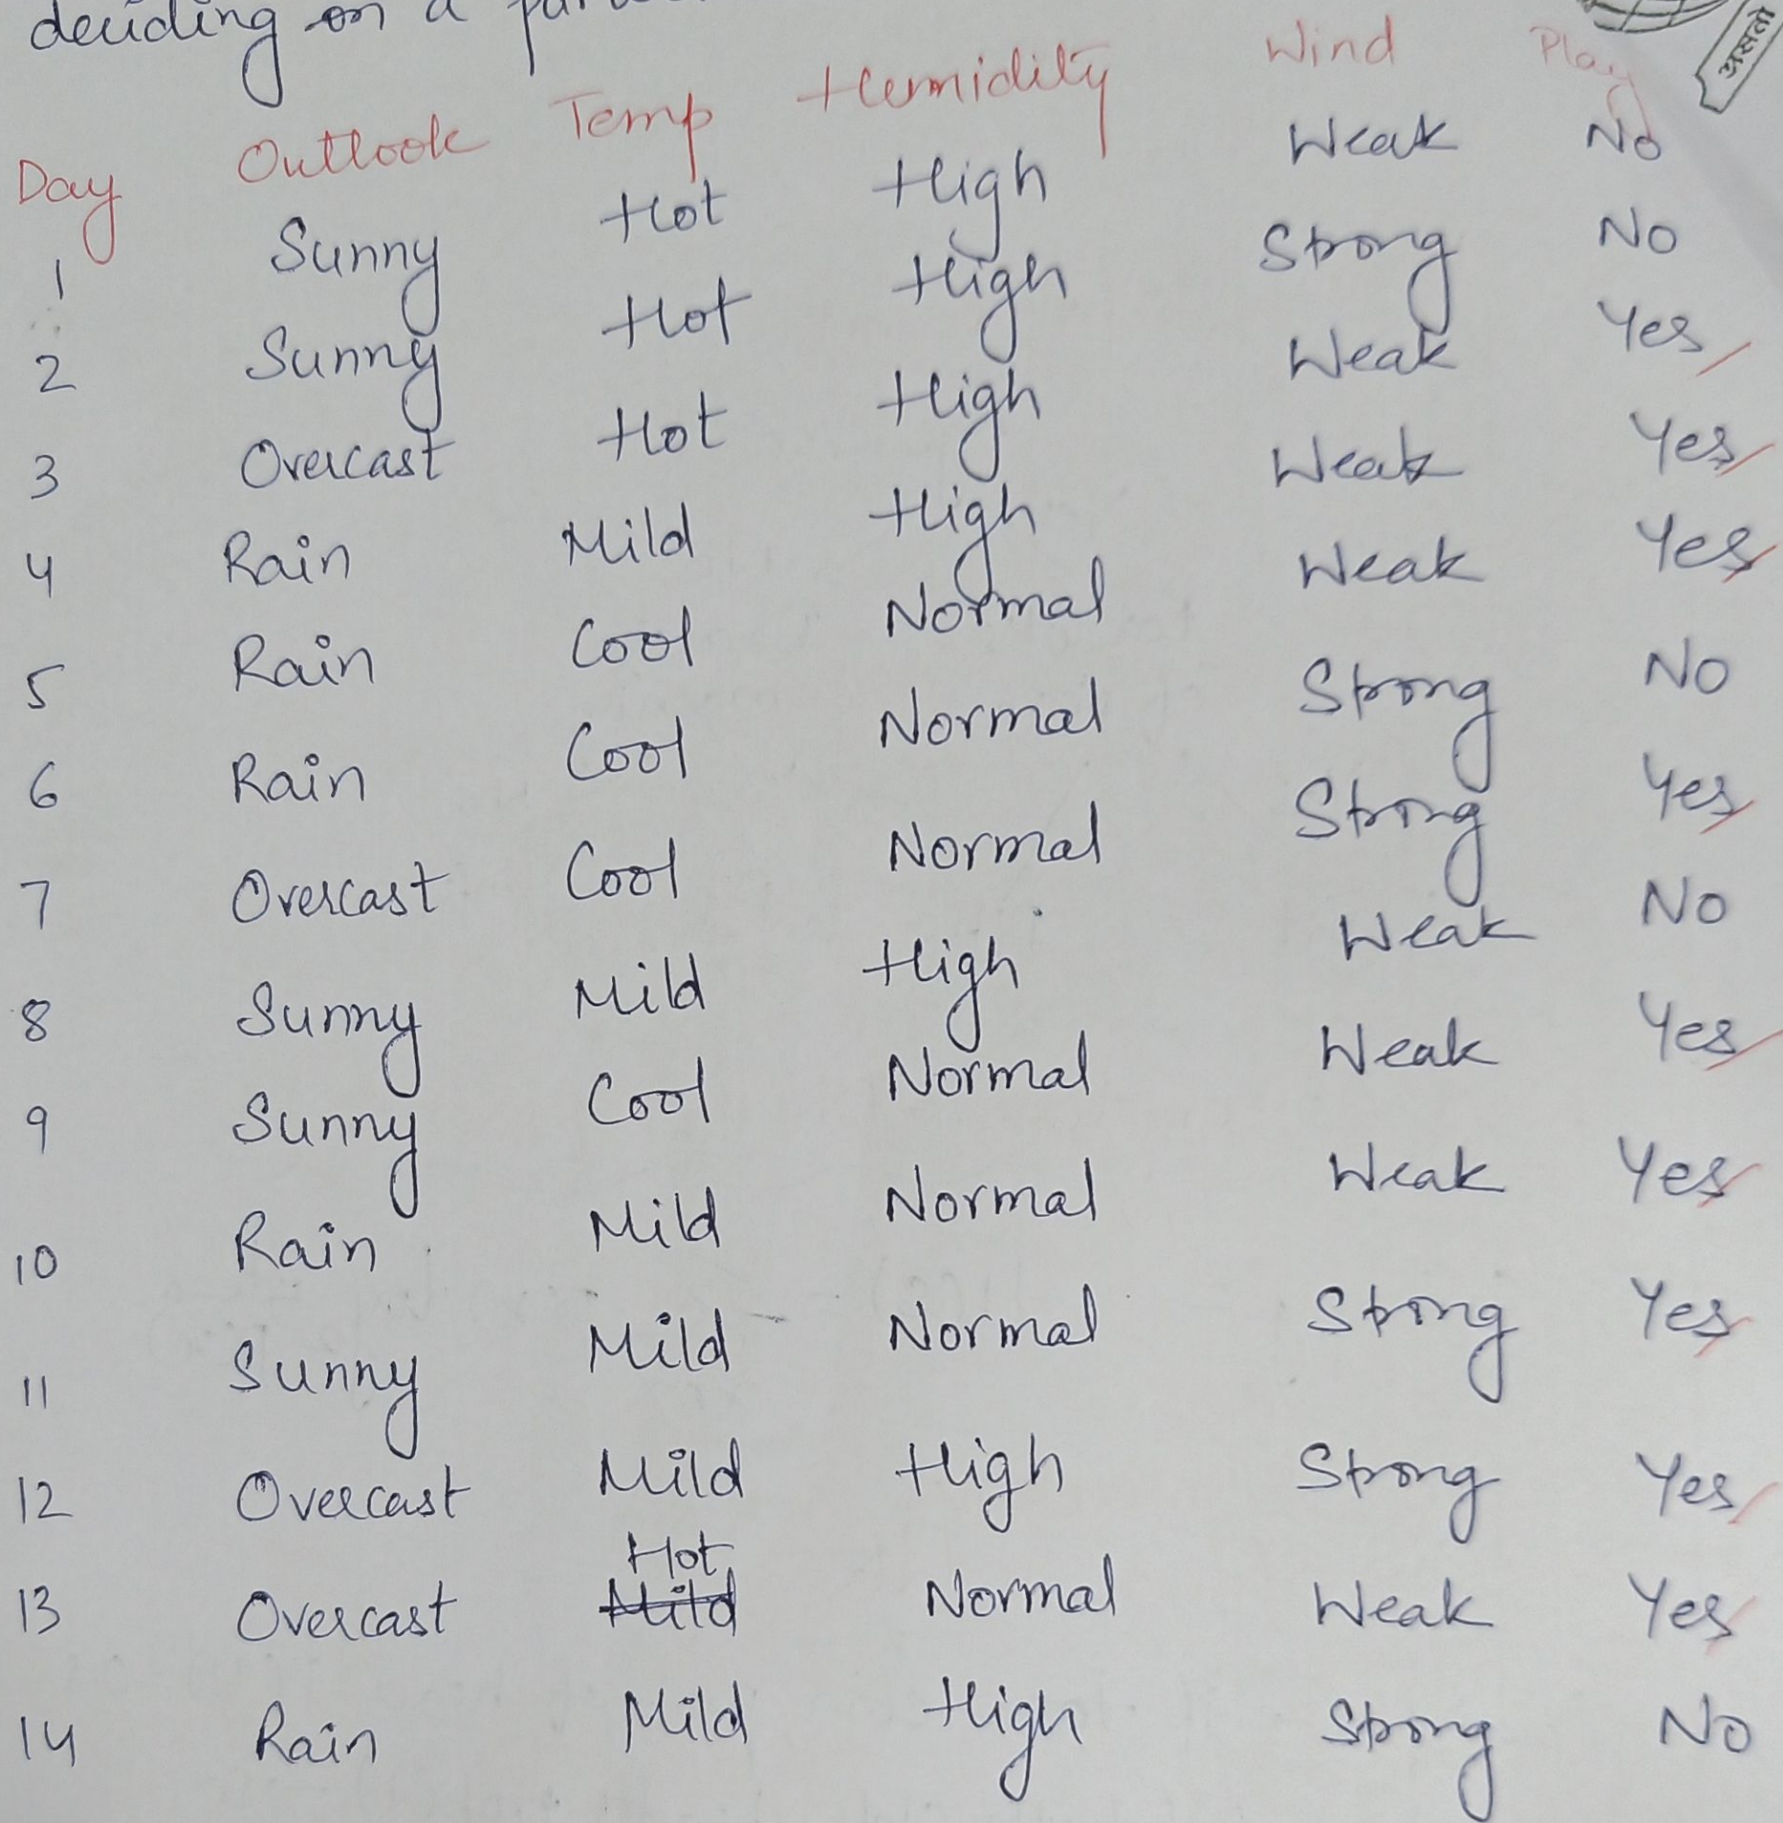 deciding on a
Day Outlook Temp Humidity Wind Play
1 Sunny Hot High Weak No
2 Sunny Hot High Strong No
3 Overcast Hot High Weak Yes
4 Rain Mild High Weak Yes
5 Rain Cool Normal Weak Yes
6 Rain Cool Normal Strong No
7 Overcast Cool Normal Strong Yes
8 Sunny Mild High Weak No
9 Sunny Cool Normal Weak Yes
10 Rain Mild Normal Weak Yes
11 Sunny Mild Normal Strong Yes
12 Overcast Mild High Strong Yes
13 Overcast Hot Mild Normal Weak Yes
14 Rain Mild High Strong No
असतो